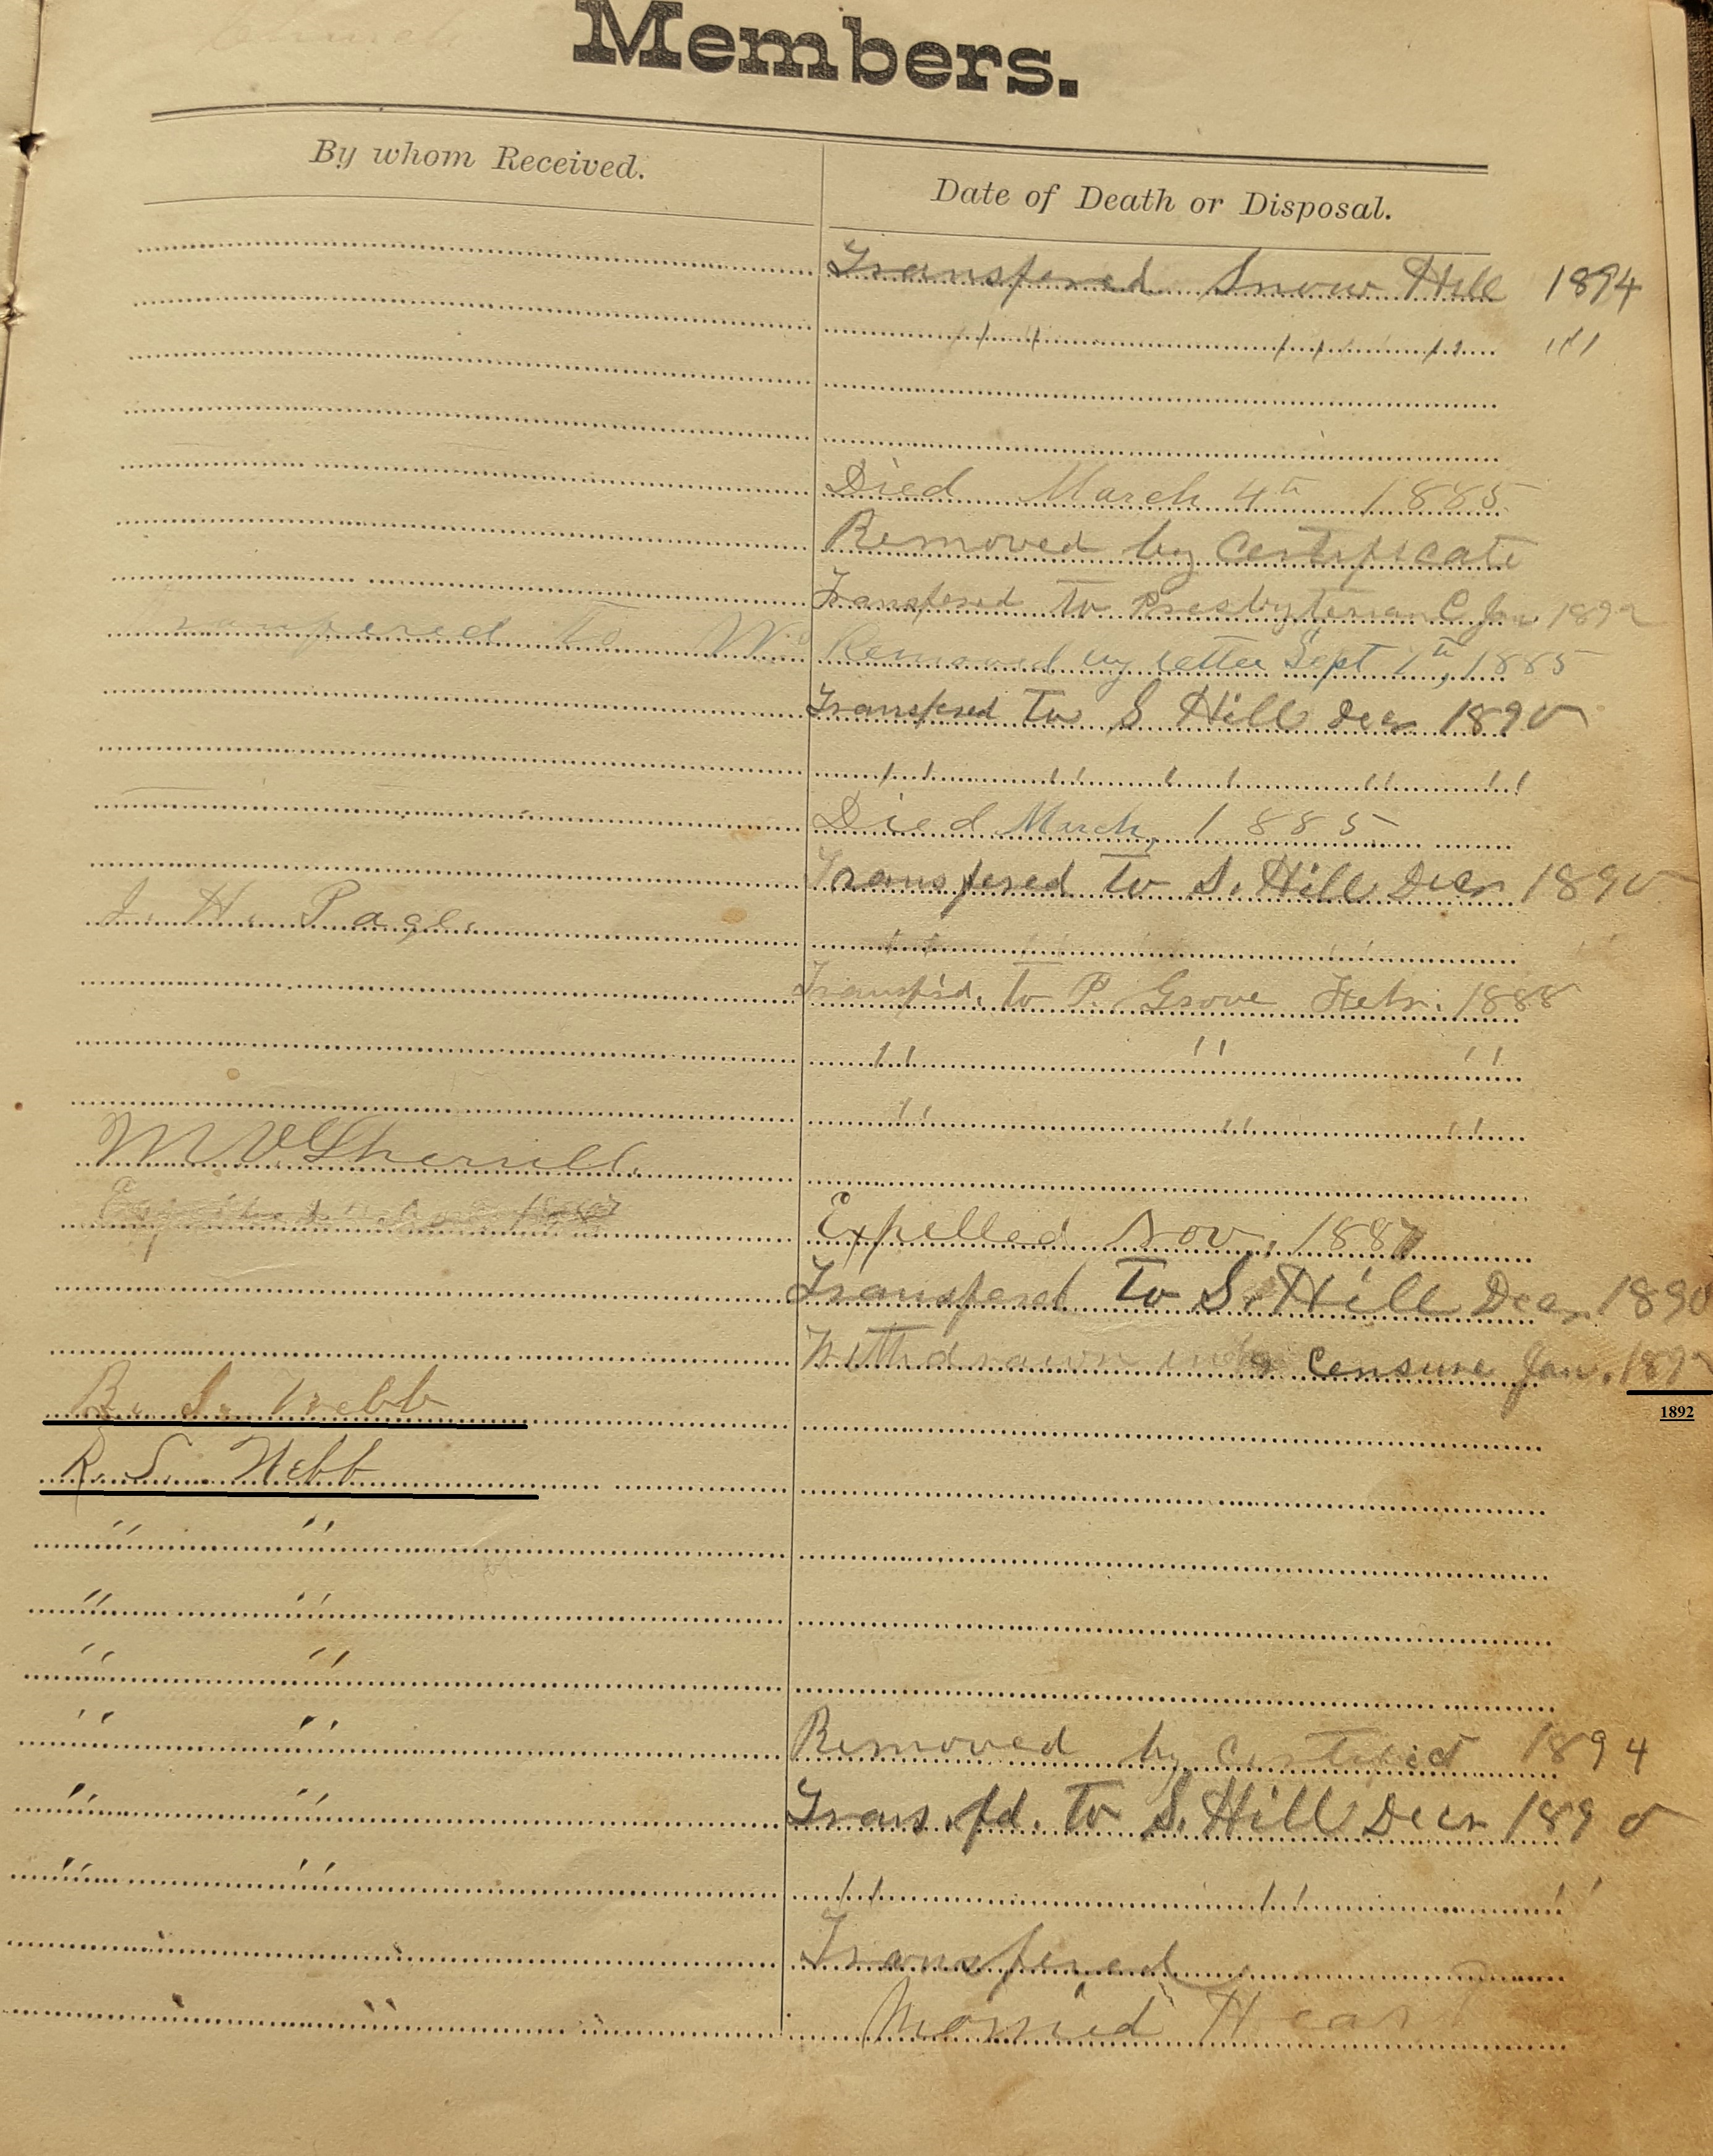 Members.
By whom Received. Date of Death or Disposal.
Transfered Snow Hill 1894
" " " "
Died March 4th 1885
Removed by Certificate
Transfered To Presbyterian C Jan 1892
To Removed by letter Sept 1885
Transfered To S Hill Decr 1890
" " " " " "
Died March, 1885
Transfered To S. Hill Decr 1890
J. H. Page.
Transf'd. to P. Grove Febr. 1888
" " "
" " "
M V Sherrill.
Expelled Nov. 1887
Transferd To S. Hill Decr 1890
Withdrawn under Censure Jan. 1892
1892
R. S. Webb
R. S. Webb
" "
" "
" "
" " Removed by Certifict 1894
" " Transfd. To S. Hill Decr 1890
" " " " "
Transfered
" " Married